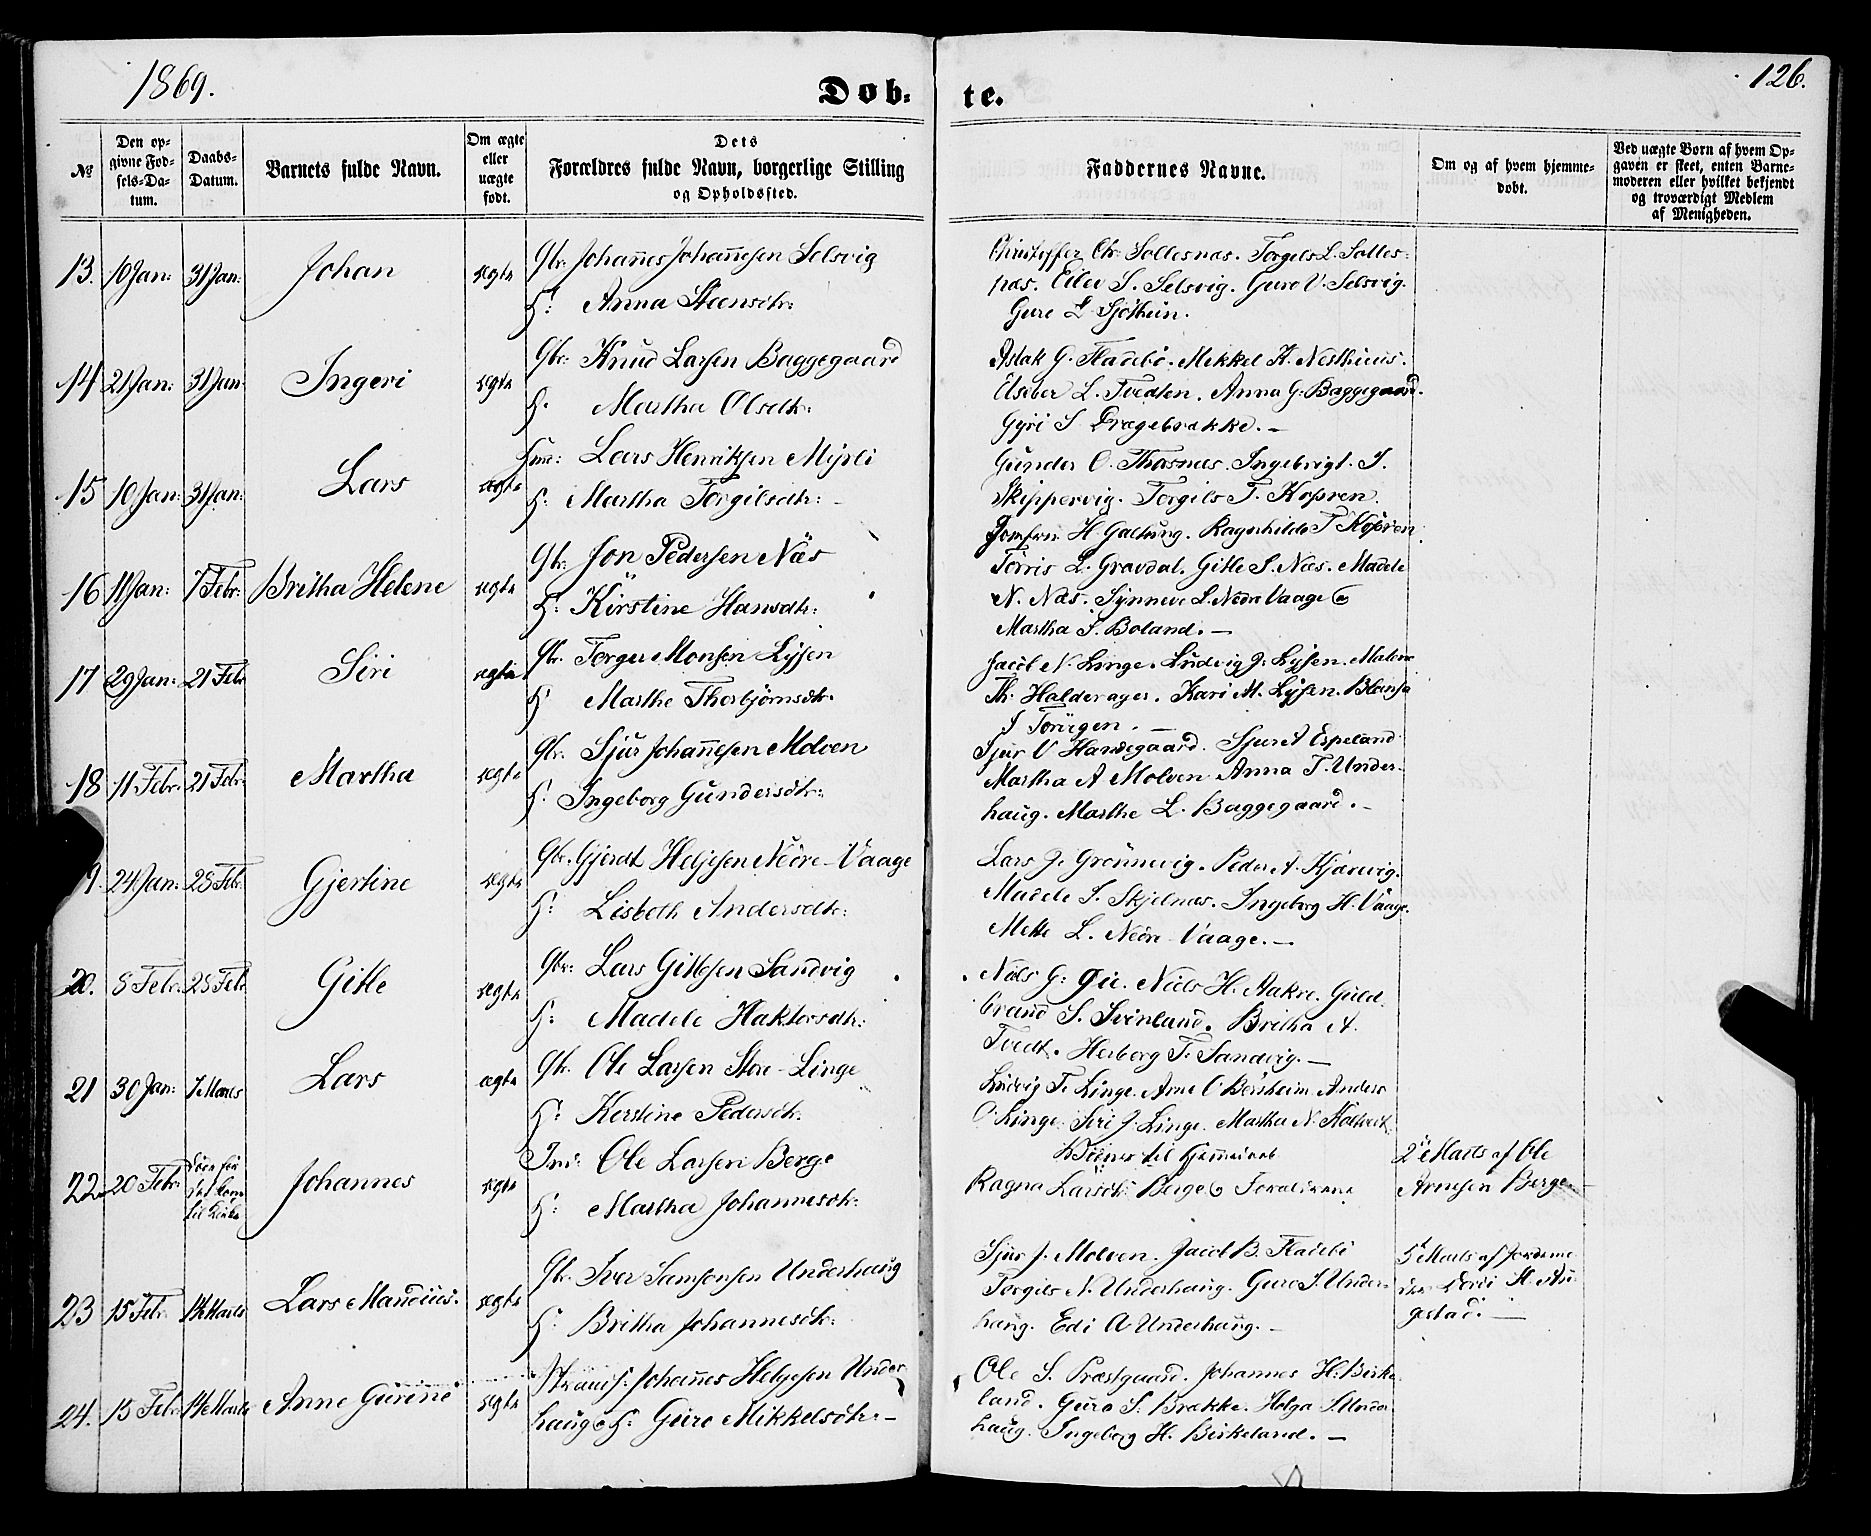 1869.
Døb-
te.
126.
№
Den op-
givne Fød-
sels-Da-
tum.
Daabs-
Datum.
Barnets fulde Navn.
Om ægte
eller
uægte
født.
Dets
Forældres fulde Navn, borgerlige Stilling
og Opholdssted.
Faddernes Navne.
Om og af hvem hjemme-
døbt.
Ved uægte Børn af hvem Op-
gaven er skeet, enten Barne-
moderen eller hvilket bekjendt
og troværdigt Medlem
af Menigheden.
13. 10 Jan: 31 Jan: Johan ægte
Gbr. Johannes Johannesen Selsvig
H: Anna Steensdtr:
Christoffer Chr. Solesnæs. Torgels L. Solles-
næs. Eilev S. Selsvig. Guro V. Selsvig.
Guro L. Sjöthun.
14 21 Jan: 31 Jan: Ingeri ægte
Gbr: Knud Larsen Baggegaard
H. Martha Olsdtr:
Aslak G. Fladebø. Mikkel K. Nesthuus.
Elseber L. Tvedten. Anna G. Baggegaard.
Gyri S Dragebrække. —
15 10 Jan: 31 Jan: Lars ægte
Huu: Lars Henriksen Myrli
H. Martha Torgilsdtr: -
Gunder O. Thorsnæs. Ingebrigt. I.
Skippervig. Torgils T. Kopren.
Jomfru H Galtung. Ragnhilde T Kopren.
16 11 Jan: 7 Febr: Britha Helene ægte
Gbr. Jon Pedersen Næs
H: Kirstine Hansdtr:
Torris L. Gravdal. Gitle S. Næs. Madele
N. Næs. Synneve L. Nedre Vaage
Martha S. Boland. —
17 29 Jan: 21 Feb Siri ægte
Gbr. Torger Monsen Lyssen
H Marthe Thorbjørnsdtr.
Jacob N. Linge. Ludvig J. Lyssen. Malene
Th. Halderager. Kari M. Lyssen. Blansa
J Tørrigen. —
18 11 Febr. 21 Febr. Martha ægte
Gbr. Sjur Johannesen Molven
H. Ingeborg Gundersdtr:
Sjur V Handegaard. Sjur A Espeland
Martha A Molven Anna T. Under-
haug. Marthe L. Baggegaard. —
9. 24 Jan: 28 Febr. Gjertine ægte
Gbr. Gjerdt Heljesen Nedre-Vaage
H: Lisbeth Andersdtr:
Lars J. Grønnevig. Peder A. Kjærevig.
Madele S. Skjelnæs. Ingeborg H. Vaage.
Mette L. Nedre Vaage. —
20. 8 Febr. 28 Febr Gitle ægte
Gbr: Lars Gitlesen Sandvig
H: Madele Haktorsdtr:
Niels G. Niels H. Aakre. Guld
brand S. Svinland. Britha A.
Tvedt. Herborg T. Sandvig. —
21 30 Jan: 7 Marts Lars ægte
Gbr. Ole Larsen Store-Linge
H: Kerstine Pedersdtr.
Ludvig T. Linge. Arne O Bersheim. Anders
O. Linge. Siri J. Linge. Martha N.
22 20 Febr: Døde før det kom til Kirke Johannes ægte
Ind: Ole Larsen Berge
H: Martha Johannesdtr:
Vidner til Hjemmedaab
Ragna Larsdtr: Berge & Forældrene
2de Marts af Ole
Arnesen Berge. —
23 15 Feb. 14 Marts Lars Mandius. ægte
Gbr. Iver Samsonsen Underhaug
H: Britha Johannesdtr:
Sjur J. Molven. Jacob B. Fladebø
Torgils N. Underhaug. Guro S. Under-
haug. Edi A Underhaug. —
5te Marts af Jordemo
gestad. —
24. 13 Febr 14 Marts Anne Gurine ægte
Strands: Johannes Helgesen Under
haug & H. Guro Mikkelsdtr: —
Ole S. Præstgaard. Johannes H. Birke
land. Guro S. Brække. Helga S. Under
haug. Ingeborg H. Birkeland. —